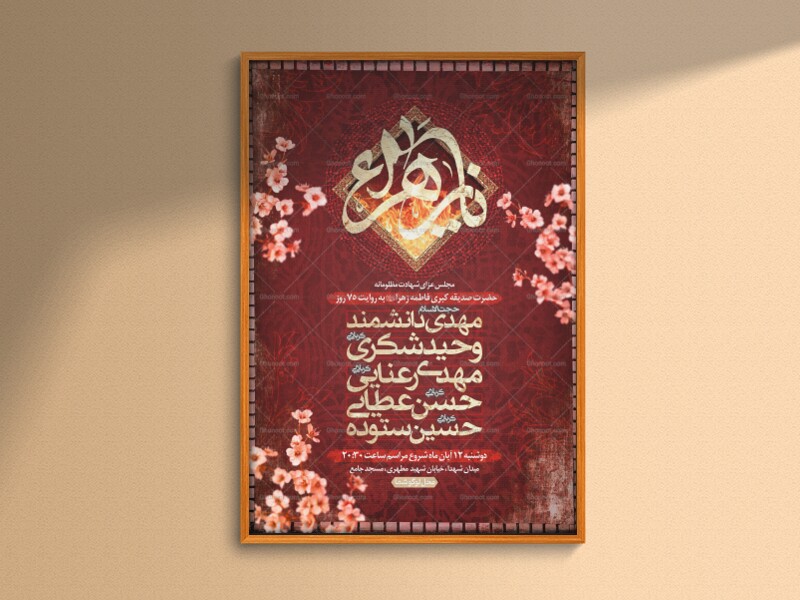 یا زهرا
مجلس عزای شهادت مظلومانه
حضرت صدیقه کبری فاطمه زهرا به روایت ۷۵ روز
حجت‌الاسلام
مهدی دانشمند
وحید شکری کربلایی
مهدی رعنایی کربلایی
حسن عطایی کربلایی
حسین ستوده کربلایی
دوشنبه ۱۲ آبان ماه شروع مراسم ساعت ۲۰:۳۰
میدان شهدا، خیابان شهید مطهری، مسجد جامع